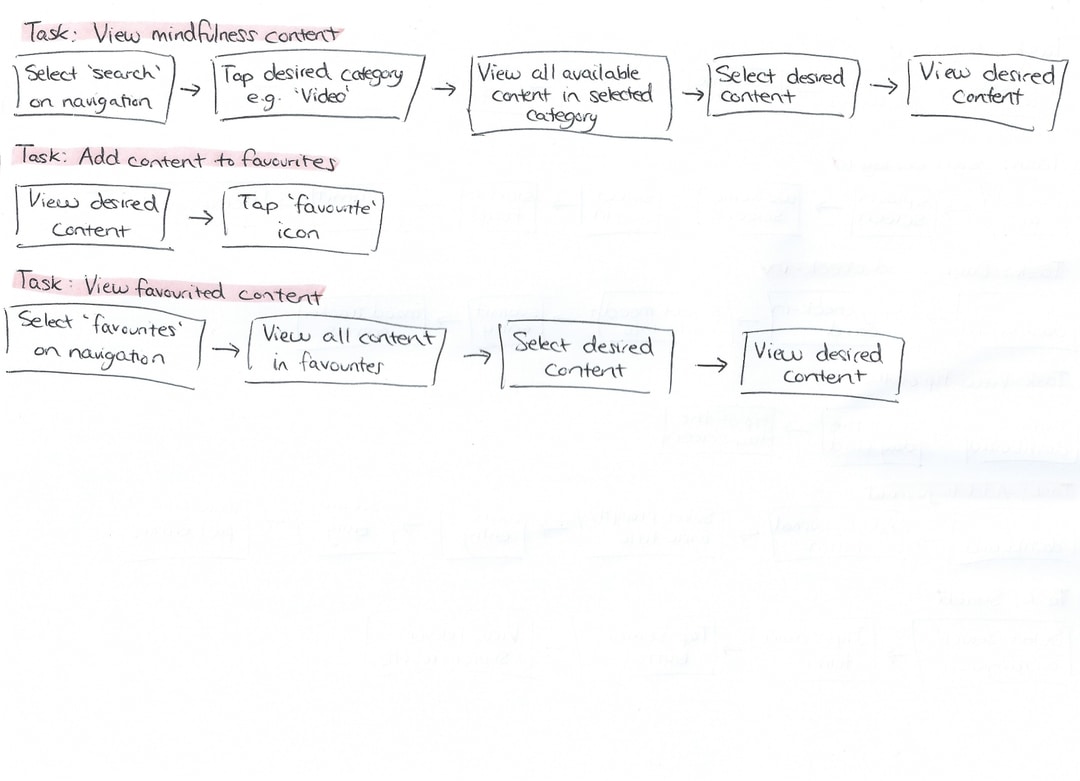 Task: View mindfulness content
Select 'search'
on navigation
→
Tap desired category
e.g. 'Video'
→
View all available
content in selected
category
→
Select desired
content
→
View desired
content
Task: Add content to favourites
View desired
content
→
Tap 'favourite'
icon
Task: View favourited content
Select 'favourites'
on navigation
→
View all content
in favourites
→
Select desired
content
→
View desired
content